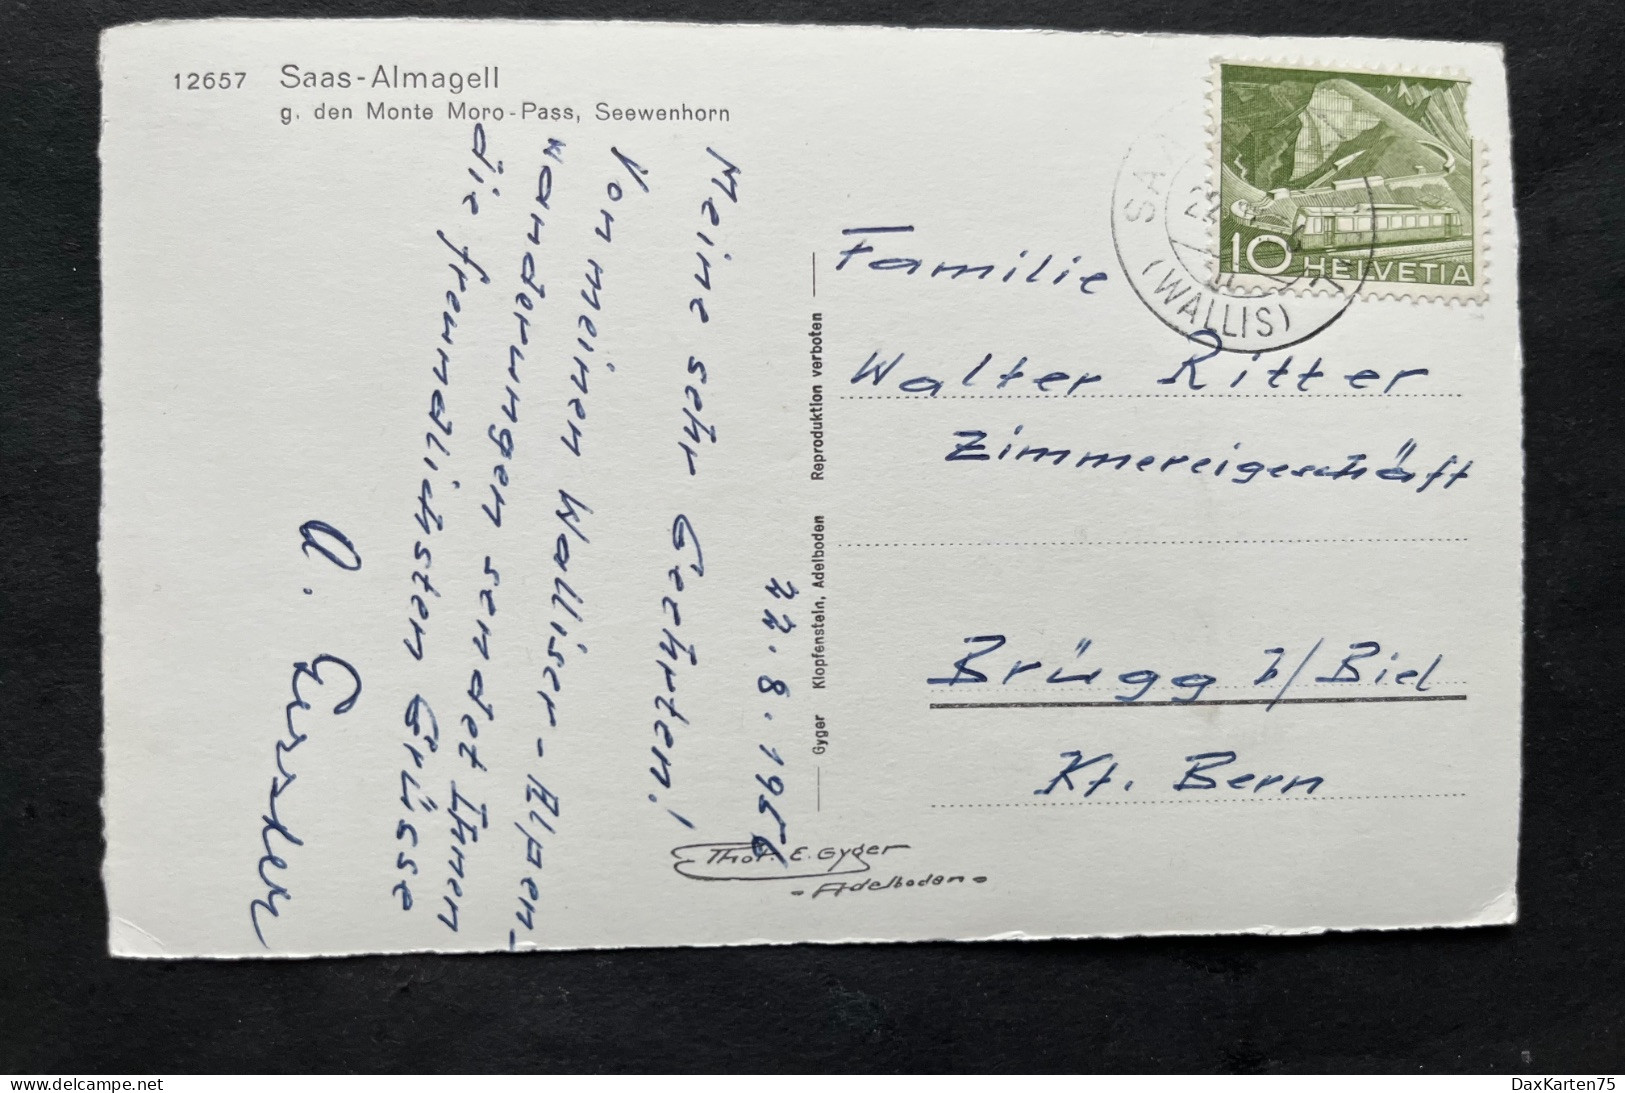 12657 Saas-Almagell
g. den Monte Moro-Pass, Seewenhorn
22.8.1956
Meine sehr Geehrten!
Von meinen Walliser-Alpen-
wanderungen sendet Ihnen
die freundlichsten Grüsse
Gyger Klopfenstein, Adelboden Reproduktion verboten
Phot. E. Gyger
-Adelboden-
HELVETIA
10
(WALLIS)
Familie
Walter Ritter
Zimmereigeschäft
Brügg b/Biel
Kt. Bern
DaxKarten75
www.delcampe.net